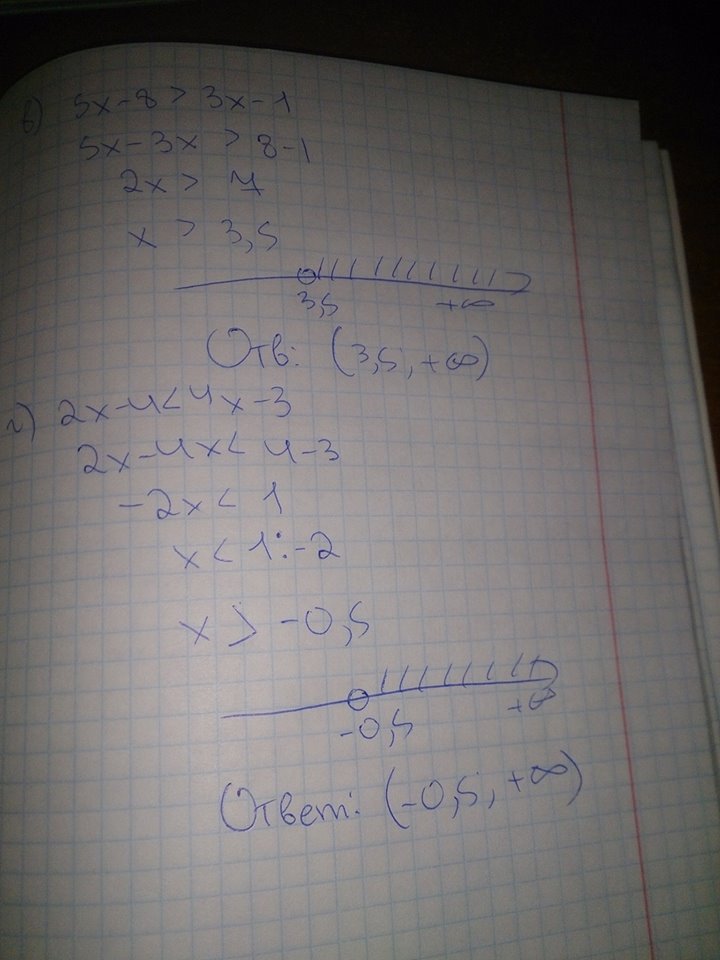 в) 5x-8 > 3x-1
5x-3x > 8-1
2x > 7
x > 3,5
3,5 +∞
Отв: (3,5, +∞)
г) 2x-4<4x-3
2x-4x< 4-3
-2x < 1
x < 1:-2
x > -0,5
-0,5 +∞
Ответ: (-0,5, +∞)